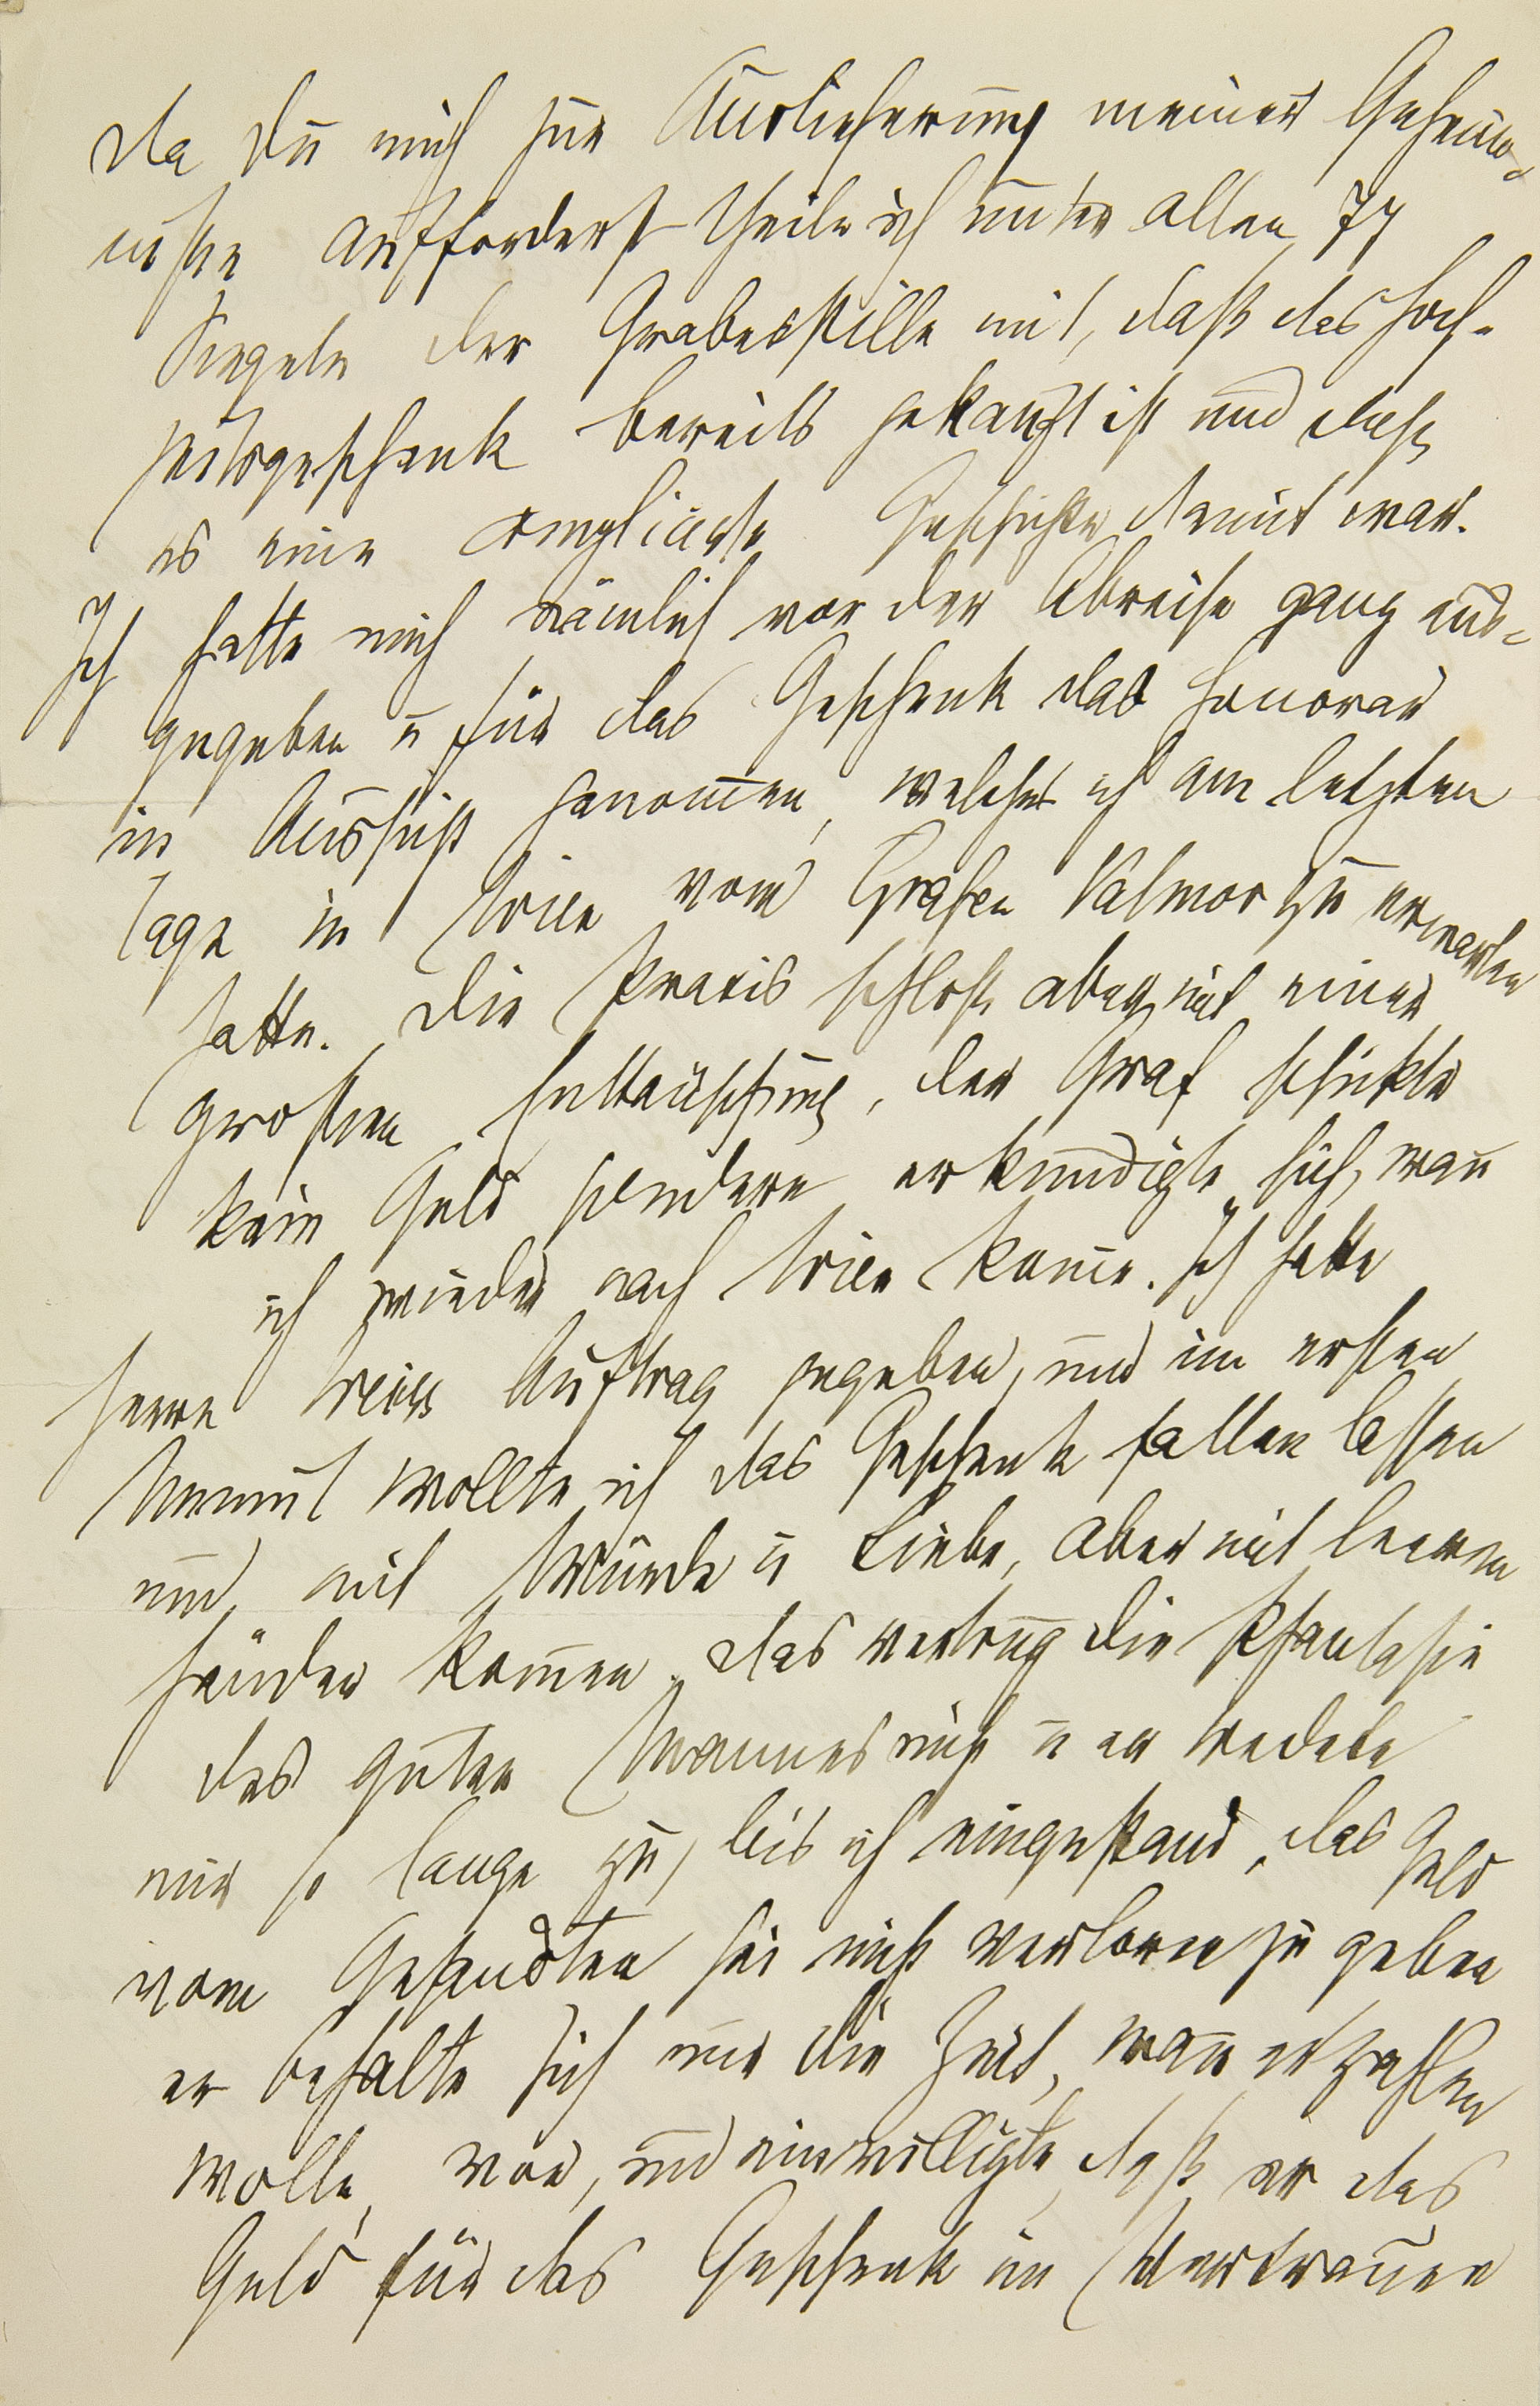 da Du mich zur Auslieferung meiner Geheim-
nisse aufforderst theile ich unter allen 77
Siegeln der Grabesstille mit, daß das Hoch-
zeitsgeschenk bereits gekauft ist und dass
es eine complicirte Geschichte damit war.
Ich hatte mich nämlich vor der Abreise ganz aus-
gegeben u für das Geschenk das Honorar
in Aussicht genommen, welches ich am letzten
Tage in Wien vom Grafen Valmor zu erwarten
hatte. Die Praxis schloss aber mit einer
grossen Enttäuschung, der Graf schickte
kein Geld sondern erkundigte sich, wann
ich wieder nach Wien komme. Ich hatte
Herrn Weiss Auftrag gegeben, und im ersten
Unmut wollte ich das Geschenk fallen lassen
und mit Würde u Liebe, aber mit leeren
Händen kommen. Das vertrug die Phantasie
des guten Mannes nicht u er redete
mir so lange zu, bis ich eingestand, das Geld
vom Gesandten sei nicht verloren zu geben
er behalte sich nur die Zeit, wann er zahlen
wolle, vor, und einwilligte, daß er das
Geld für das Geschenk im Vertrauen